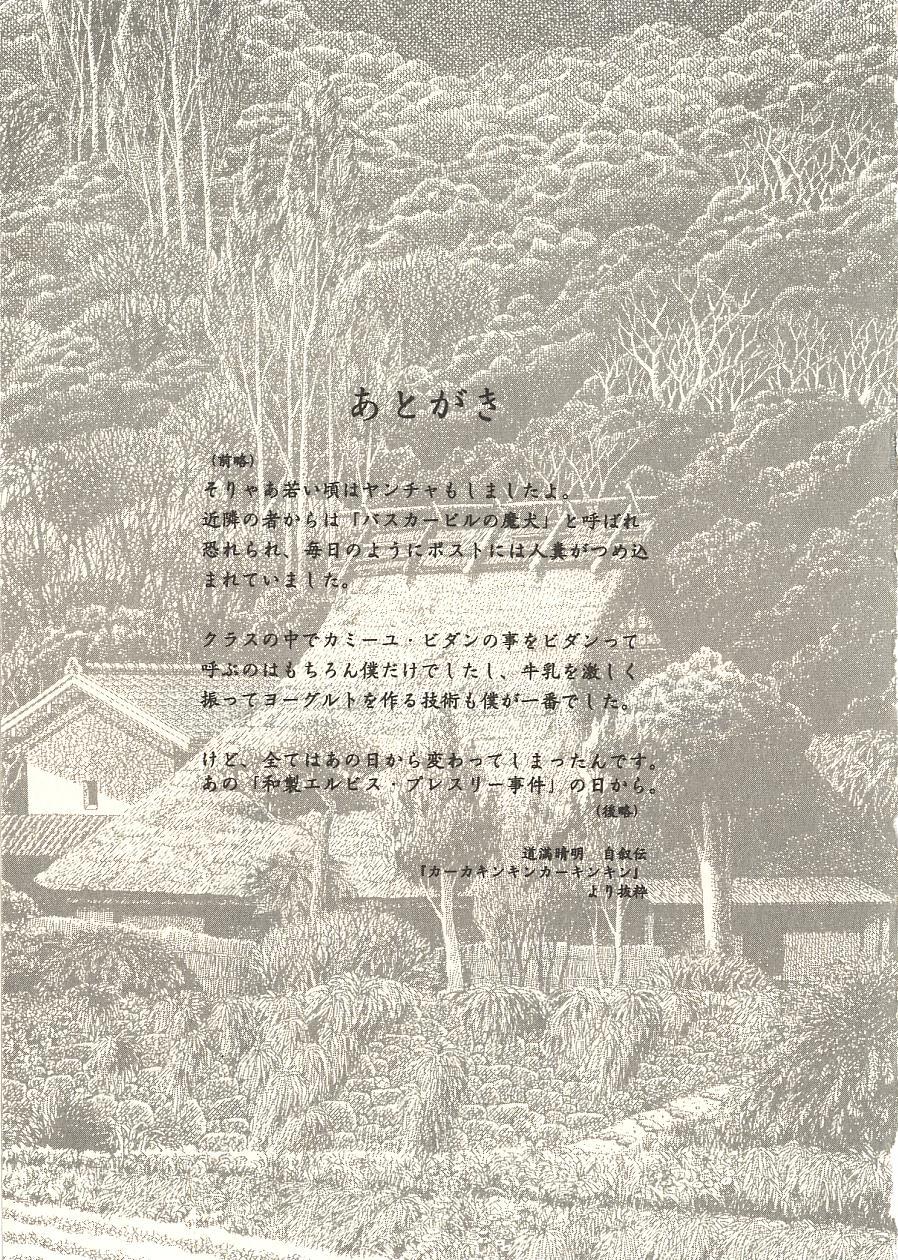 あとがき
(前略)
そりゃあ若い頃はヤンチャもしましたよ。
近隣の者からは「バスカービルの魔犬」と呼ばれ
恐れられ、毎日のようにポストには人糞がつめ込
まれていました。
クラスの中でカミーユ・ビダンの事をビダンって
呼ぶのはもちろん僕だけでしたし、牛乳を激しく
振ってヨーグルトを作る技術も僕が一番でした。
けど、全てはあの日から変わってしまったんです。
あの「和製エルビス・プレスリー事件」の日から。
(後略)
道満晴明 自叙伝
『カーカキンキンカーキンキン』
より抜粋